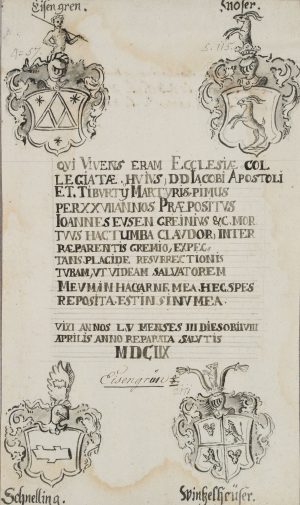 Eisengren.
Gnoser.
QVI VIVENS ERAM ECCLESIÆ COL
LEGIATÆ HVIVS DD IACOBI APOSTOLI
ET TIBVRTY MARTYRIS PIMUS
PER XXVII ANNOS PRÆPOSITVS
IOANNES EVSEN GREINIVS &C. MOR
TVVS HAC TVMBA CLAVDOR: INTER
RÆ PARENTIS GREMIO, EXPEC,
TANS, PLACIDE RESVRRECTIONIS
TVBAM, VT VIDEAM SALVATOREM
MEVM IN HAC CARNE MEA. HEC SPES
REPOSITA EST IN SINV MEA.
VIXI ANNOS LV MENSES III DIES OBII VIII
APRILIS ANNO REPARATÆ SALVTIS
MDCIIX
Eisengrün
Schnelling.
Winkelheüser.